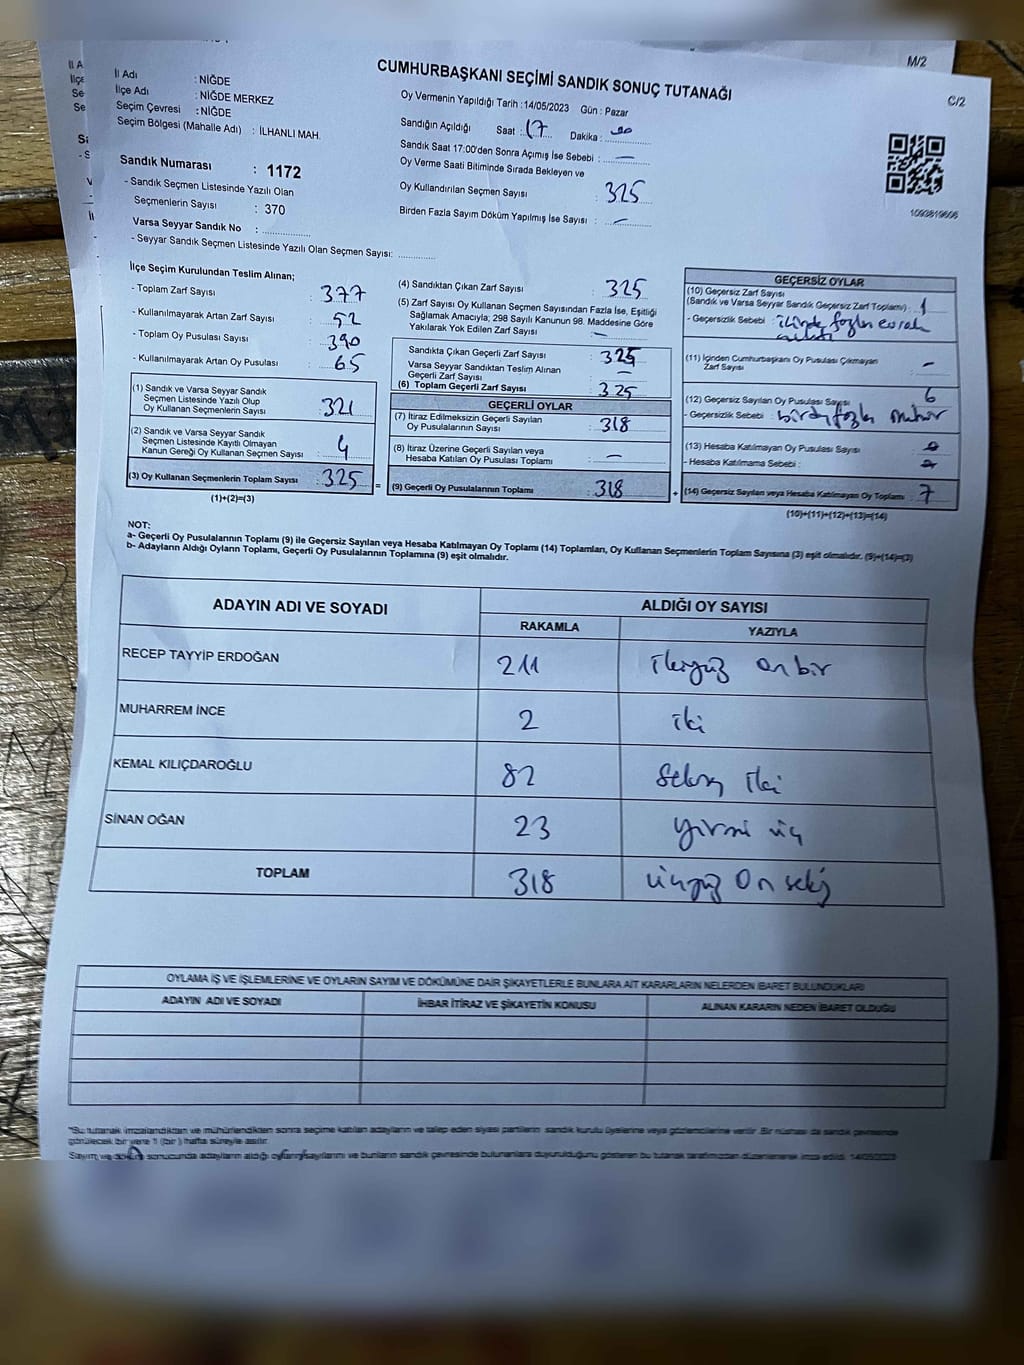 M/2
CUMHURBAŞKANI SEÇİMİ SANDIK SONUÇ TUTANAĞI
C/2
İl Adı : NİĞDE
İlçe Adı : NİĞDE MERKEZ
Seçim Çevresi : NİĞDE
Seçim Bölgesi (Mahalle Adı) : İLHANLI MAH.
Sandık Numarası : 1172
- Sandık Seçmen Listesinde Yazılı Olan
Seçmenlerin Sayısı : 370
Varsa Seyyar Sandık No :
- Seyyar Sandık Seçmen Listesinde Yazılı Olan Seçmen Sayısı:
Oy Vermenin Yapıldığı Tarih : 14/05/2023 Gün : Pazar
Sandığın Açıldığı Saat : 17 Dakika :
Sandık Saat 17:00'den Sonra Açımış İse Sebebi : —
Oy Verme Saati Bitiminde Sırada Bekleyen ve
Oy Kullandırılan Seçmen Sayısı : 325
Birden Fazla Sayım Döküm Yapılmış İse Sayısı : —
1093819606
İlçe Seçim Kurulundan Teslim Alınan;
- Toplam Zarf Sayısı : 377
- Kullanılmayarak Artan Zarf Sayısı : 52
- Toplam Oy Pusulası Sayısı : 390
- Kullanılmayarak Artan Oy Pusulası : 65
(1) Sandık ve Varsa Seyyar Sandık
Seçmen Listesinde Yazılı Olup
Oy Kullanan Seçmenlerin Sayısı : 321
(2) Sandık ve Varsa Seyyar Sandık
Seçmen Listesinde Kayıtlı Olmayan
Kanun Gereği Oy Kullanan Seçmen Sayısı : 4
(3) Oy Kullanan Seçmenlerin Toplam Sayısı : 325
(1)+(2)=(3)
=
(4) Sandıktan Çıkan Zarf Sayısı : 325
(5) Zarf Sayısı Oy Kullanan Seçmen Sayısından Fazla İse, Eşitliği
Sağlamak Amacıyla; 298 Sayılı Kanunun 98. Maddesine Göre
Yakılarak Yok Edilen Zarf Sayısı : —
Sandıkta Çıkan Geçerli Zarf Sayısı : 325
Varsa Seyyar Sandıktan Teslim Alınan
Geçerli Zarf Sayısı : —
(6) Toplam Geçerli Zarf Sayısı : 325
GEÇERLİ OYLAR
(7) İtiraz Edilmeksizin Geçerli Sayılan
Oy Pusulalarının Sayısı : 318
(8) İtiraz Üzerine Geçerli Sayılan veya
Hesaba Katılan Oy Pusulası Toplamı : —
(9) Geçerli Oy Pusulalarının Toplamı : 318
+
GEÇERSİZ OYLAR
(10) Geçersiz Zarf Sayısı
(Sandık ve Varsa Seyyar Sandık Geçersiz Zarf Toplamı) : 1
- Geçersizlik Sebebi : içinde fazla evrak
(11) İçinden Cumhurbaşkanı Oy Pusulası Çıkmayan
Zarf Sayısı : —
(12) Geçersiz Sayılan Oy Pusulası Sayısı : 6
- Geçersizlik Sebebi : birden fazla mühür
(13) Hesaba Katılmayan Oy Pusulası Sayısı :
- Hesaba Katılmama Sebebi :
(14) Geçersiz Sayılan veya Hesaba Katılmayan Oy Toplamı : 7
(10)+(11)+(12)+(13)=(14)
NOT:
a- Geçerli Oy Pusulalarının Toplamı (9) ile Geçersiz Sayılan veya Hesaba Katılmayan Oy Toplamı (14) Toplamları, Oy Kullanan Seçmenlerin Toplam Sayısına (3) eşit olmalıdır. (9)+(14)=(3)
b- Adayların Aldığı Oyların Toplamı, Geçerli Oy Pusulalarının Toplamına (9) eşit olmalıdır.
ADAYIN ADI VE SOYADI ALDIĞI OY SAYISI
RAKAMLA YAZIYLA
RECEP TAYYİP ERDOĞAN 211 ikiyüz on bir
MUHARREM İNCE 2 iki
KEMAL KILIÇDAROĞLU 82 Seksen iki
SİNAN OĞAN 23 yirmi üç
TOPLAM 318 üçyüz On sekiz
OYLAMA İŞ VE İŞLEMLERİNE VE OYLARIN SAYIM VE DÖKÜMÜNE DAİR ŞİKAYETLERLE BUNLARA AİT KARARLARIN NELERDEN İBARET BULUNDUKLARI
ADAYIN ADI VE SOYADI İHBAR İTİRAZ VE ŞİKAYETİN KONUSU ALINAN KARARIN NEDEN İBARET OLDUĞU
*Bu tutanak imzalandıktan ve mühürlendikten sonra seçime katılan adayların ve talep eden siyasi partilerin sandık kurulu üyelerine veya gözlemcilerine verilir. Bir nüshası da sandık çevresinde
görülecek bir yere 1 (bir) hafta süreyle asılır.
Sayım ve döküm sonucunda adayların aldığı oyların sayılarını ve bunların sandık çevresinde bulunanlara duyurulduğunu gösteren bu tutanak tarafımızdan düzenlenerek imza edildi. 14/05/2023